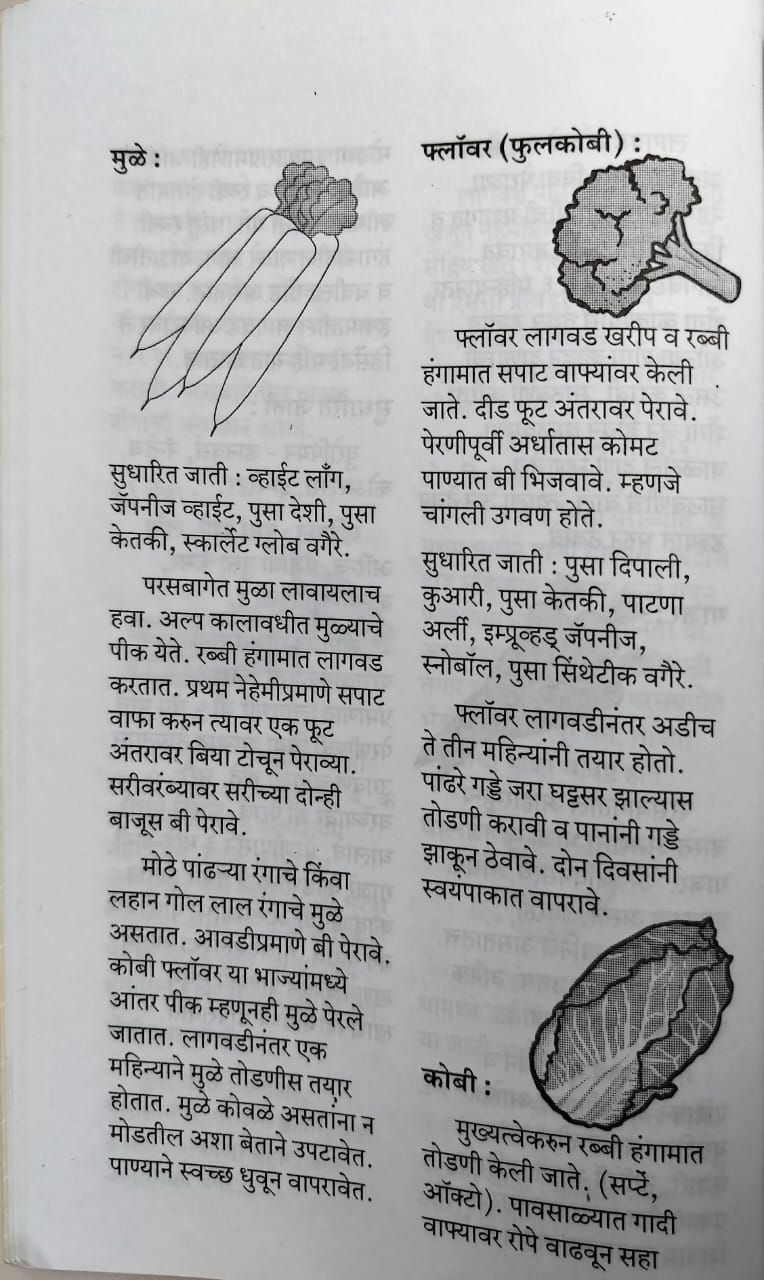 मुळे :
सुधारित जाती : व्हाईट लाँग,
जॅपनीज व्हाईट, पुसा देशी, पुसा
केतकी, स्कार्लेट ग्लोब वगैरे.
परसबागेत मुळा लावायलाच
हवा. अल्प कालावधीत मुळ्याचे
पीक येते. रब्बी हंगामात लागवड
करतात. प्रथम नेहेमीप्रमाणे सपाट
वाफा करुन त्यावर एक फूट
अंतरावर बिया टोचून पेराव्या.
सरीवरंब्यावर सरीच्या दोन्ही
बाजूस बी पेरावे.
मोठे पांढऱ्या रंगाचे किंवा
लहान गोल लाल रंगाचे मुळे
असतात. आवडीप्रमाणे बी पेरावे.
कोबी फ्लॉवर या भाज्यांमध्ये
आंतर पीक म्हणूनही मुळे पेरले
जातात. लागवडीनंतर एक
महिन्याने मुळे तोडणीस तयार
होतात. मुळे कोवळे असतांना न
मोडतील अशा बेताने उपटावेत.
पाण्याने स्वच्छ धुवून वापरावेत.
फ्लॉवर (फुलकोबी) :
फ्लॉवर लागवड खरीप व रब्बी
हंगामात सपाट वाफ्यांवर केली
जाते. दीड फूट अंतरावर पेरावे.
पेरणीपूर्वी अर्धातास कोमट
पाण्यात बी भिजवावे. म्हणजे
चांगली उगवण होते.
सुधारित जाती : पुसा दिपाली,
कुआरी, पुसा केतकी, पाटणा
अर्ली, इम्प्रूव्हड् जॅपनीज,
स्नोबॉल, पुसा सिंथेटीक वगैरे.
फ्लॉवर लागवडीनंतर अडीच
ते तीन महिन्यांनी तयार होतो.
पांढरे गड्डे जरा घट्टसर झाल्यास
तोडणी करावी व पानांनी गड्डे
झाकून ठेवावे. दोन दिवसांनी
स्वयंपाकात वापरावे.
कोबी :
मुख्यत्वेकरुन रब्बी हंगामात
तोडणी केली जाते. (सप्टें,
ऑक्टो). पावसाळ्यात गादी
वाफ्यावर रोपे वाढवून सहा